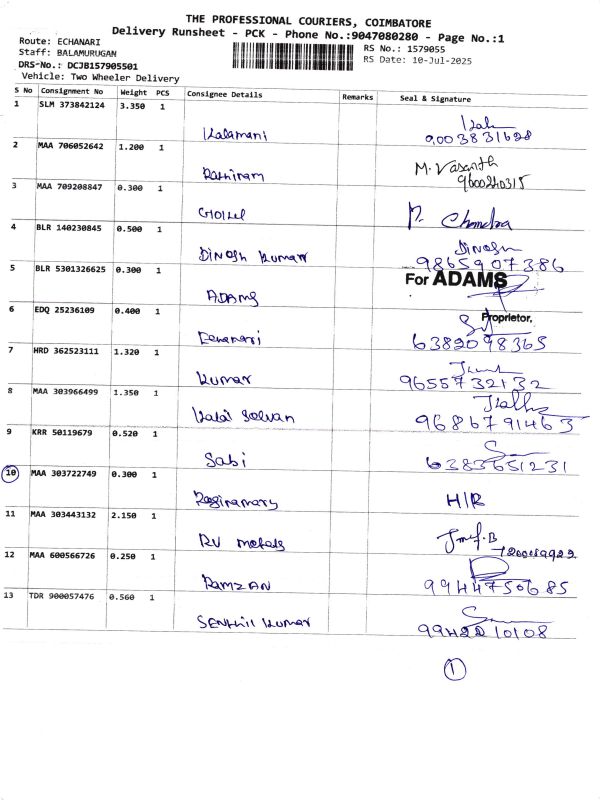 THE PROFESSIONAL COURIERS, COIMBATORE
Delivery Runsheet - PCK - Phone No.:9047080280 - Page No.:1
Route: ECHANARI
Staff: BALAMURUGAN
RS No.: 1579055
DRS-No.: DCJB157905501
RS Date: 10-Jul-2025
Vehicle: Two Wheeler Delivery
S No Consignment No Weight PCS Consignee Details Remarks Seal & Signature
1 SLM 373842124 3.350 1
Kalamani
2 MAA 706052642 1.200 1
M. Vasanth
9600240315
3 MAA 709208847 0.300 1
Chandra
4 BLR 140230845 0.500 1
Dinosh Kumar Dinosh
9865907386
5 BLR 5301326625 0.300 1
For ADAMS
ADAMS
Proprietor.
6 EDQ 25236109 0.400 1
Echanari 6382098365
7 HRD 362523111 1.320 1
Kumar 9655732132
8 MAA 303966499 1.350 1
Kalai Selvan 9686791463
9 KRR 50119679 0.520 1
Sabi 6383651231
10 MAA 303722749 0.300 1
H/R
11 MAA 303443132 2.150 1
RV metals
12 MAA 600566726 0.250 1
RAMZAN 9944750685
13 TDR 900057476 0.560 1
SENthil Kumar
1